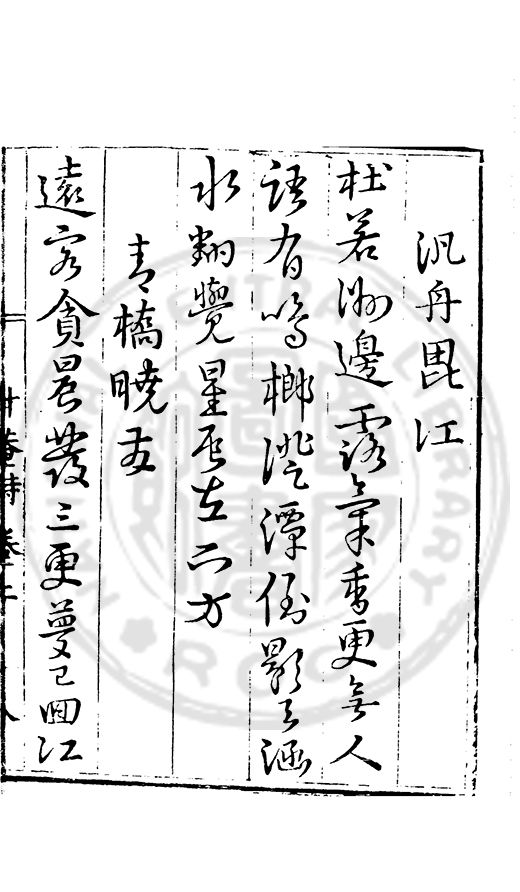 汎舟毘江
杜若洲邊露氣香更無人
語有鳴榔澄潭倒影天涵
水翻覺星辰在下方
青橋曉友
遠客貪晨發三更夢已回江